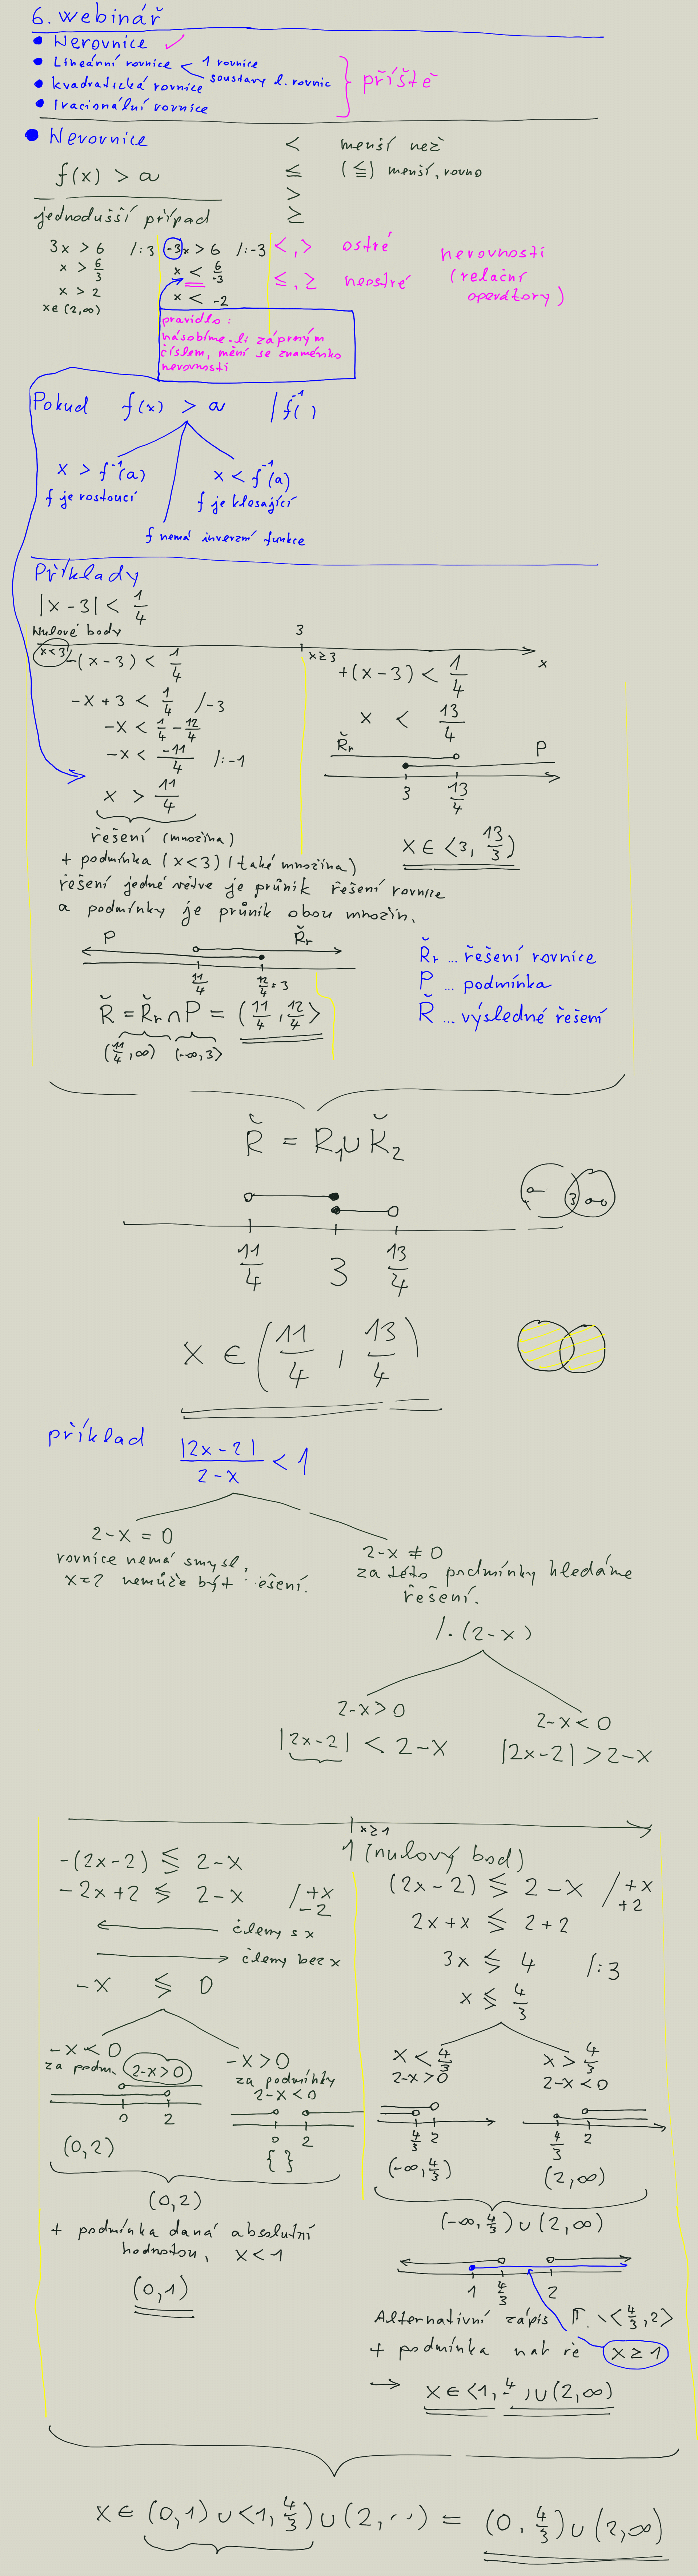 6. webinář
• Nerovnice ✓
• Lineární rovnice < 1 rovnice
soustavy l. rovnic
• kvadratická rovnice
• Iracionální rovnice
} příště
• Nerovnice
f(x) > a
< menší než
≤ (≦) menší, rovno
>
≥
jednodušší případ
3x > 6 /:3
x > 6/3
x > 2
x ∈ (2,∞)
-3x > 6 /:-3
x < 6/-3
x < -2
<, > ostré
≤, ≥ neostré
nerovnosti
(relační
operátory)
pravidlo:
násobíme-li záporným
číslem, mění se znaménko
nerovnosti
Pokud f(x) > a | f⁻¹( )
x > f⁻¹(a)
f je rostoucí
x < f⁻¹(a)
f je klesající
f nemá inverzní funkce
Příklady
|x-3| < 1/4
Nulové body
3
x
x<3
-(x-3) < 1/4
-x+3 < 1/4 /-3
-x < 1/4 - 12/4
-x < -11/4 /:-1
x > 11/4
x≥3
+(x-3) < 1/4
x < 13/4
Řr P
3 13/4
x ∈ <3, 13/3)
řešení (množina)
+ podmínka (x<3) (také množina)
řešení jedné větve je průnik řešení rovnice
a podmínky je průnik obou množin.
P Řr
11/4 12/4=3
Ř = Řr ∩ P = (11/4, 12/4>
(11/4, ∞) (-∞, 3>
Řr ... řešení rovnice
P ... podmínka
Ř ... výsledné řešení
Ř = R₁ ∪ Ř₂
3
11/4 3 13/4
x ∈ (11/4, 13/4)
příklad |2x-2|/2-x < 1
2-x = 0
rovnice nemá smysl,
x=2 nemůže být ešení.
2-x ≠ 0
za této podmínky hledáme
řešení.
/·(2-x)
2-x > 0
|2x-2| < 2-x
2-x < 0
|2x-2| > 2-x
x≥1
1 (nulový bod)
-(2x-2) ≶ 2-x
-2x+2 ≶ 2-x /+x
-2
členy s x
členy bez x
-x ≶ 0
-x < 0
za podm. 2-x>0
0 2
(0,2)
-x > 0
za podmínky
2-x < 0
0 2
{ }
(0,2)
+ podmínka daná absolutní
hodnotou, x<1
(0,1)
(2x-2) ≶ 2-x /+x
+2
2x+x ≶ 2+2
3x ≶ 4 /:3
x ≶ 4/3
x < 4/3
2-x>0
4/3 2
(-∞, 4/3)
x > 4/3
2-x<0
4/3 2
(2,∞)
(-∞, 4/3) ∪ (2,∞)
1 4/3 2
Alternativní zápis \<4/3, 2>
+ podmínka x≥1
→ x ∈ <1, 4 ) ∪ (2,∞)
x ∈ (0,1) ∪ <1, 4/3) ∪ (2, ..) = (0, 4/3) ∪ (2,∞)